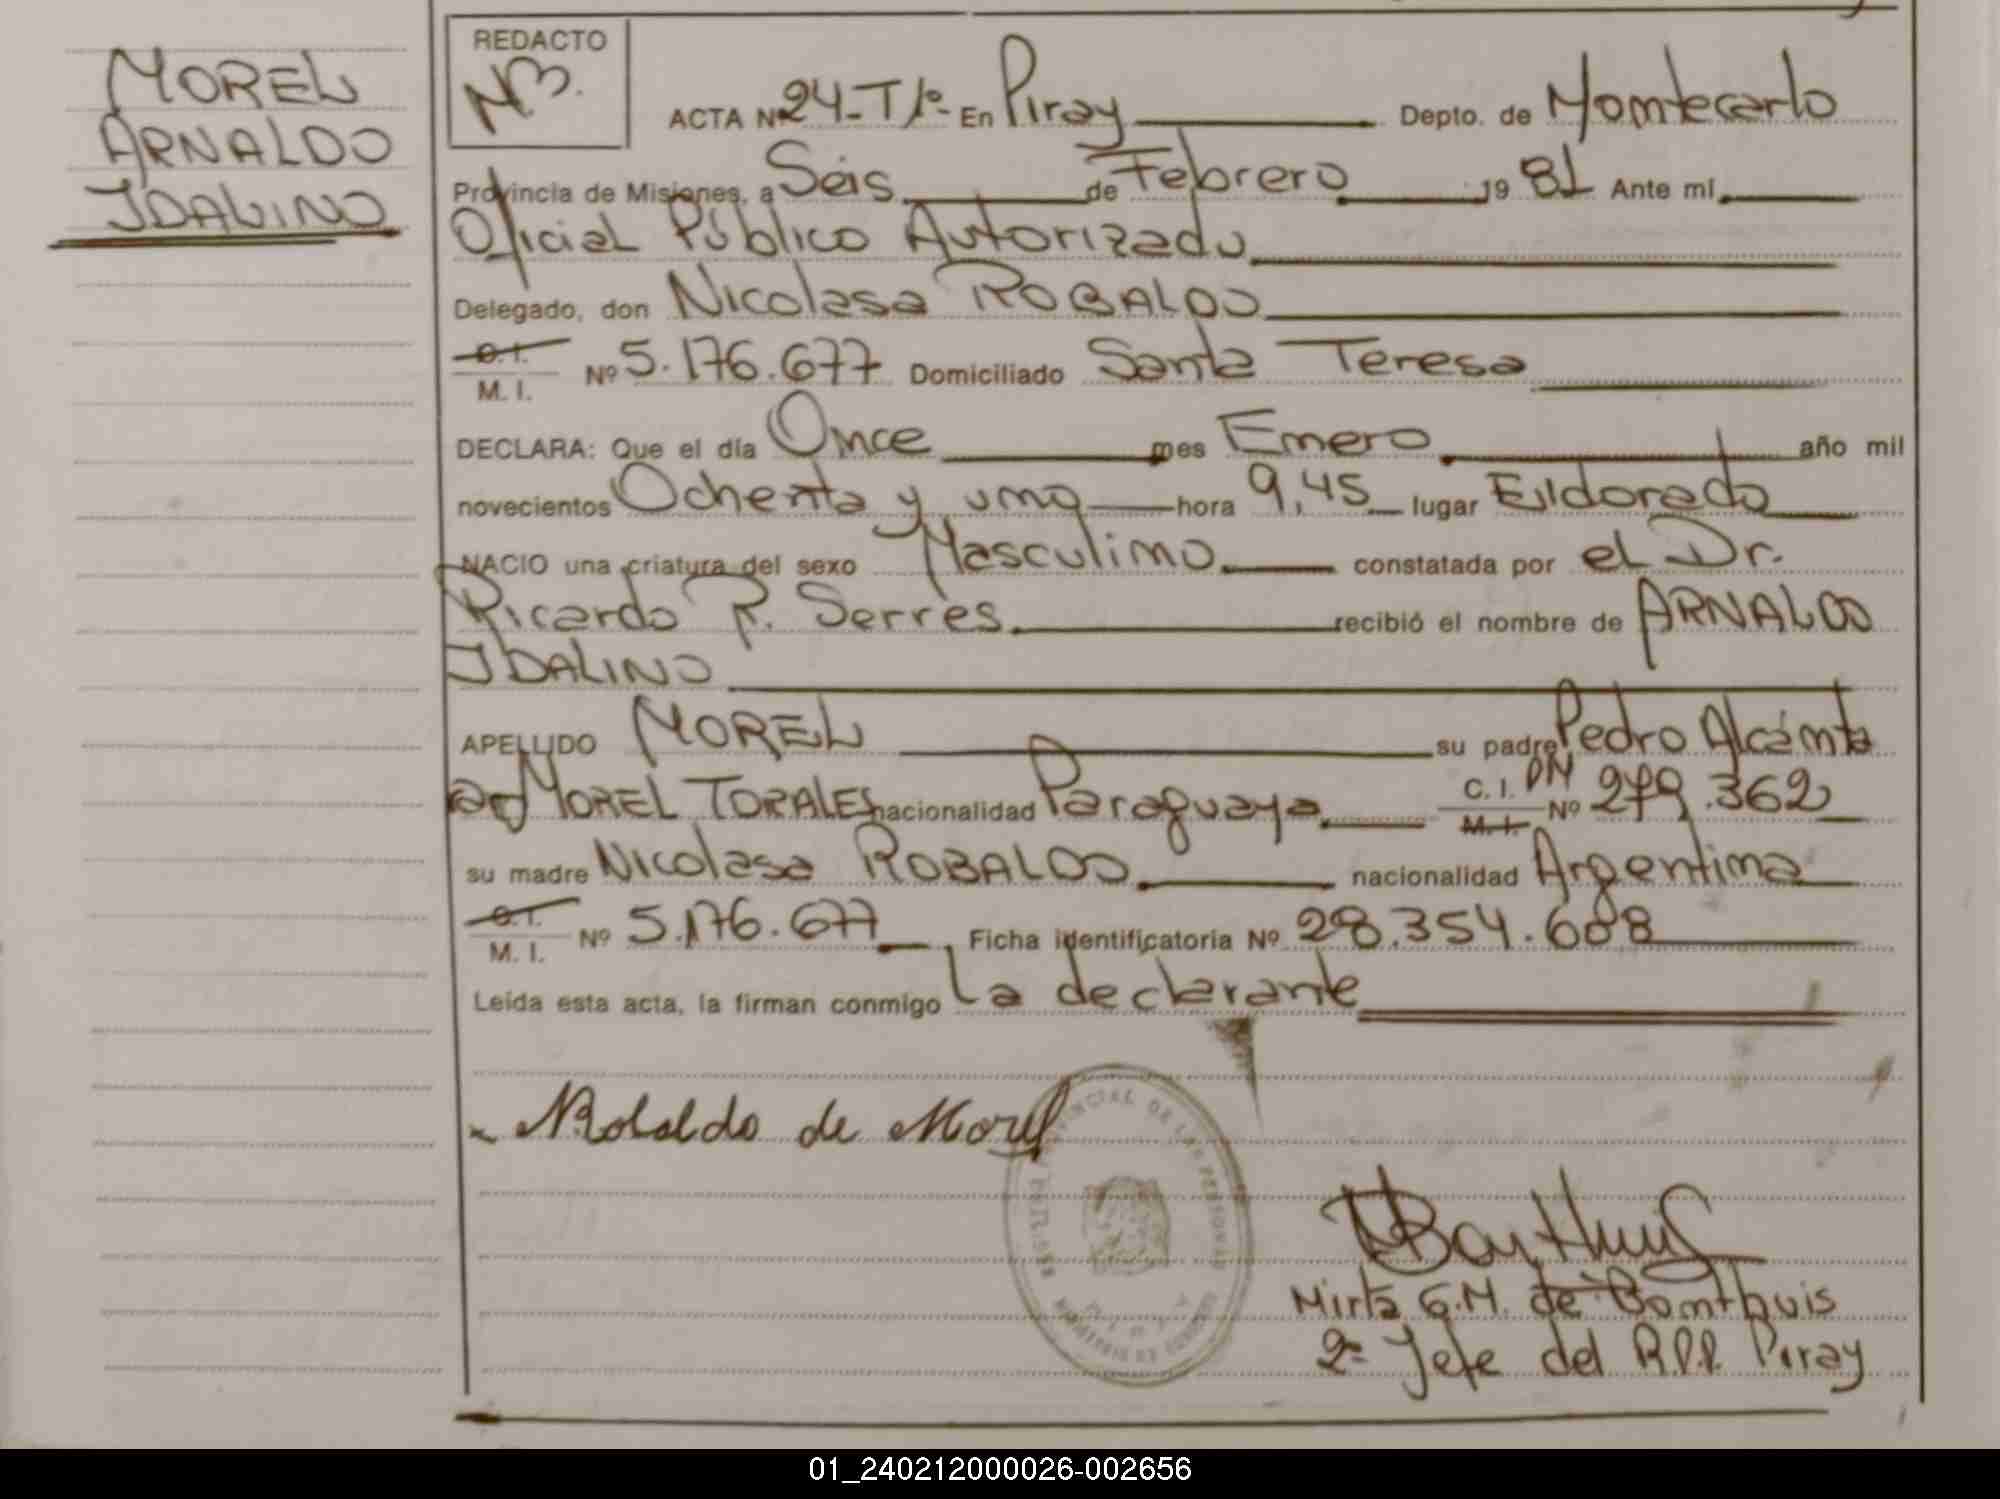 MOREL
ARNALDO
IDALINO
REDACTO
ACTA Nº 24-Tº1º- En Piray Depto. de Montecarlo
Provincia de Misiones, a Seis de Febrero 19 81 Ante mí
Oficial Público Autorizado
Delegado, don Nicolasa ROBALDO
C. I.
M. I. Nº 5.176.677 Domiciliado Santa Teresa
DECLARA: Que el día Once mes Enero año mil
novecientos Ochenta y uno hora 9,45 lugar Eldorado
NACIO una criatura del sexo Masculino constatada por el Dr.
Ricardo R. Serres recibió el nombre de ARNALDO
IDALINO
APELLIDO MOREL su padre Pedro Alcánta
MOREL TORALES nacionalidad Paraguaya C. I. M. I. Nº 279.362
su madre Nicolasa ROBALDO nacionalidad Argentina
C. I.
M. I. Nº 5.176.677 Ficha identificatoria Nº 28.354.608
Leída esta acta, la firman conmigo La declarante
NRobaldo de Morel
PROVINCIAL DE LAS PERSONAS
PIRAY
Mirta G.M. de Bonthuis
2º Jefe del R.P.P. Piray
01_240212000026-002656